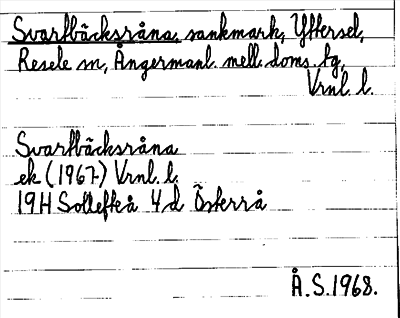 Svartbäcksråna, sankmark, Yttersel,
Resele sn, Ångermanl. mell. doms. tg,
Vrnl. l.
Svartbäcksråna
ek (1967) Vrnl. l.
19H Sollefteå 4d Österrå
Å.S.1968.